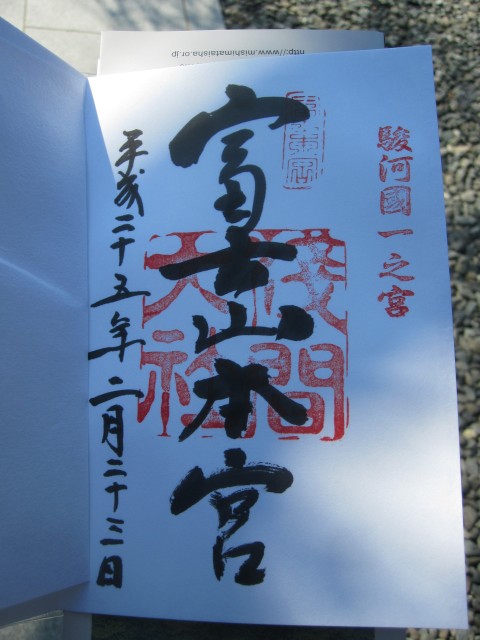 http://www.mishimataisha.or.jp
駿河國一之宮
富士山本宮
淺間
大社
平成二十五年二月二十三日